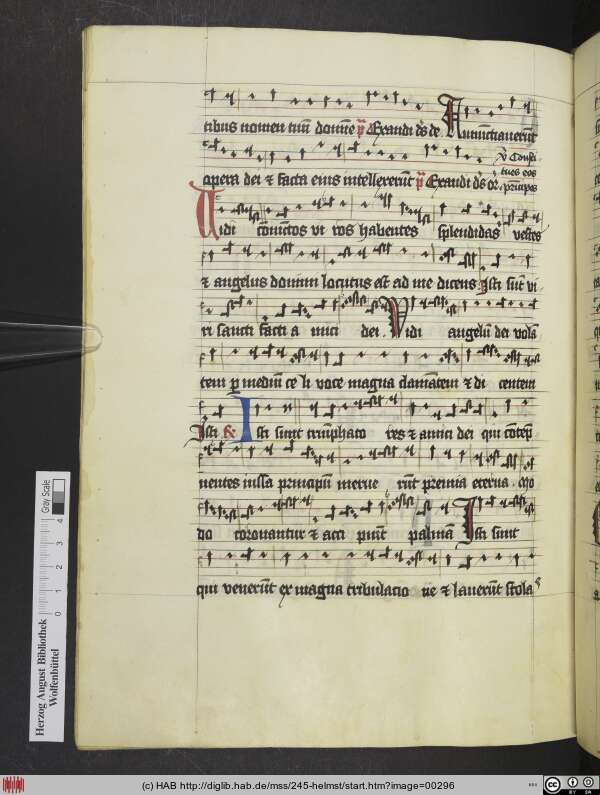 tibus nomen tuū domīe p̄s Exaudi d̄s de Annūtiauerūt
opera dei ⁊ facta eius intellexerūt p̄s Exaudi d̄s
v̄ Consti
tues eos
pͥncipes
Vidi coniūctos viros habentes splendidas vestes
⁊ angelus domini locutus est ad me dicens Isti sūt vi
ri sancti facti amici dei. Vidi angelū dei volā
tem ꝑ mediū celi voce magna clamātem ⁊ dicentem
Isti R̄ Isti sunt triūphatores ⁊ amici dei qui cōtēp
nentes iussa principū meruerūt premia eterna. Mo
do coronantur ⁊ accipiūt palmā Isti sunt
qui venerūt ex magna tribulacione ⁊ lauerūt stolas
Herzog August Bibliothek
Wolfenbüttel
0 1 2 3 4
Gray Scale
(c) HAB http://diglib.hab.de/mss/245-helmst/start.htm?image=00296
cc BY SA